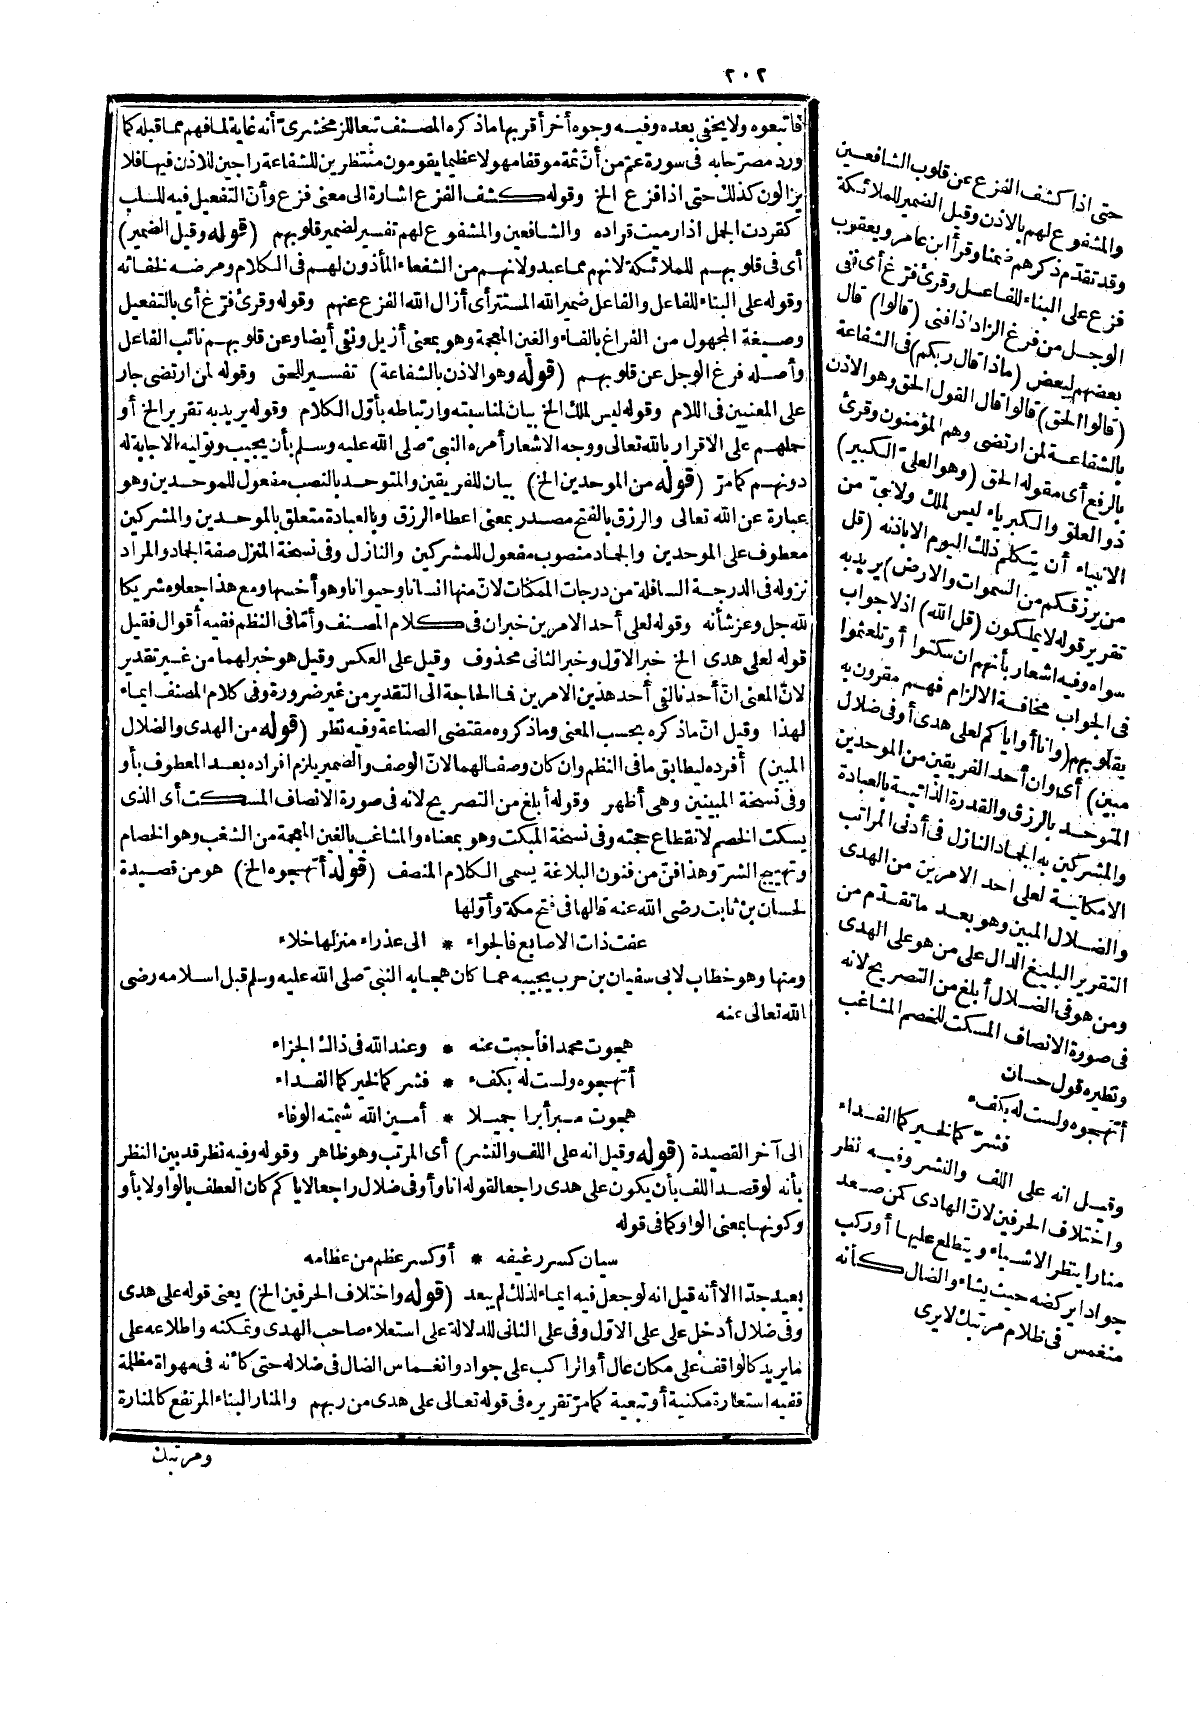 ٢٠٢
فاتبعوه ولا يخفى بعده وفيه وجوه أخر أقربها ما ذكره المصنف تبعا للزمخشرىّ أنه غاية لما فهم مما قبله كما
ورد مصرّحا به فى سورة عم من أنّ ثمة موقفا مهولا عظيما يقومون منتظرين للشفاعة راجين للاذن فيها فلا
يزالون كذلك حتى اذا فزع الخ وقوله كشف الفزع اشارة الى معنى فزع وأنّ التفعيل فيه للسلب
كقردت الجمل اذا رميت قراده والشافعين والمشفوع لهم تفسير لضمير قلوبهم (قوله وقيل الضمير)
أى فى قلوبهم للملائكة لانهم مما عبد ولانهم من الشفعاء المأذون لهم فى الكلام ومرضه لخفائه
وقوله على البناء للفاعل والفاعل ضمير الله المستتر أى أزال الله الفزع عنهم وقوله وقرئ فرّغ أى بالتفعيل
وصيغة المجهول من الفراغ بالفاء والغين المعجمة وهو بمعنى أزيل ونفى أيضا وعن قلوبهم نائب الفاعل
وأصله فرغ الوجل عن قلوبهم (قوله وهو الاذن بالشفاعة) تفسير للحق وقوله لمن ارتضى جار
على المعنيين فى اللام وقوله ليس لملك الخ بيان لمناسبته وارتباطه بأوّل الكلام وقوله يريد به تقرير الخ أو
حملهم على الاقرار بالله تعالى ووجه الاشعار أمره النبىّ صلى الله عليه وسلم بأن يجيب وتوليته الاجابة له
دونهم كما مرّ (قوله من الموحدين الخ) بيان للفريقين والمتوحد بالنصب مفعول للموحدين وهو
عبارة عن الله تعالى والرزق بالفتح مصدر بمعنى اعطاء الرزق وبالعبادة متعلق بالموحدين والمشركين
معطوف على الموحدين والجماد منصوب مفعول للمشركين والنازل وفى نسخة المنزل صفة الجماد والمراد
نزوله فى الدرجة السافلة من درجات الممكنات لانّ منها انسانا وحيوانا وهو أخسها ومع هذا جعلوه شريكا
لله جل وعز شأنه وقوله لعلى أحد الامرين خبران فى كلام المصنف وأمّا فى النظم ففيه أقوال فقيل
قوله لعلى هدى الخ خبر الاول وخبر الثانى محذوف وقيل على العكس وقيل هو خبر لهما من غير تقدير
لانّ المعنى انّ أحدنا لفى أحد هذين الامرين فما الحاجة الى التقدير من غير ضرورة وفى كلام المصنف ايماء
لهذا وقيل انّ ما ذكره بحسب المعنى وما ذكروه مقتضى الصناعة وفيه نظر (قوله من الهدى والضلال
المبين) أفرده ليطابق ما فى النظم وان كان وصفا لهما لانّ الوصف والضمير يلزم افراده بعد المعطوف بأو
وفى نسخة المبينين وهى أظهر وقوله أبلغ من التصريح لانه فى صورة الانصاف المسكت أى الذى
يسكت الخصم لانقطاع حجته وفى نسخة المبكت وهو بمعناه والمشاغب بالغين المعجمة من الشغب وهو الخصام
وتهييج الشرّ وهذا فنّ من فنون البلاغة يسمى الكلام المنصف (قوله أتهجوه الخ) هو من قصيدة
لحسان بن ثابت رضى الله عنه قالها فى فتح مكة وأوّلها
عفت ذات الاصابع فالجواء * الى عذراء منزلها خلاء
ومنها وهو خطاب لابى سفيان بن حرب يجيبه عما كان هجا به النبىّ صلى الله عليه وسلم قبل اسلامه رضى
الله تعالى عنه
هجوت محمدا فأجبت عنه * وعند الله فى ذاك الجزاء
أتهجوه ولست له بكفء * فشركما لخيركما الفداء
هجوت مبرأ برا جميلا * أمين الله شيمته الوفاء
الى آخر القصيدة (قوله وقيل انه على اللف والنشر) أى المرتب وهو ظاهر وقوله وفيه نظر قد بين النظر
بأنه لو قصد اللف بأن يكون على هدى راجعا لقوله انا وأو فى ضلال راجعا لاياكم كان العطف بالواو لا بأو
وكونها بمعنى الواو كما فى قوله
سيان كسر رغيفه * أو كسر عظم من عظامه
بعيد جدّا الا أنه قيل انه لو جعل فيه ايماء لذلك لم يبعد (قوله واختلاف الحرفين الخ) يعنى قوله على هدى
وفى ضلال أدخل على على الاوّل وفى على الثانى للدلالة على استعلاء صاحب الهدى وتمكنه واطلاعه على
ما يريد كالواقف على مكان عال أو الراكب على جواد وانغماس الضال فى ضلاله حتى كأنه فى مهواة مظلمة
ففيه استعارة مكنية أو تبعية كما مرّ تقريره فى قوله تعالى على هدى من ربهم والمنار البناء المرتفع كالمنارة
ومرتبك
حتى اذا كشف الفزع عن قلوب الشافعين
والمشفوع لهم بالاذن وقيل الضمير للملائكة
وقد تقدّم ذكرهم ضمنا وقرأ ابن عامر ويعقوب
فزع على البناء للفاعل وقرئ فرّغ أى نفى
الوجل من فرغ الزاد اذا فنى (قالوا) قال
بعضهم لبعض (ماذا قال ربكم) فى الشفاعة
(قالوا الحق) قالوا قال القول الحق وهو الاذن
بالشفاعة لمن ارتضى وهم المؤمنون وقرئ
بالرفع أى مقوله الحق (وهو العلىّ الكبير)
ذو العلوّ والكبرياء ليس لملك ولا نبىّ من
الانبياء أن يتكلم ذلك اليوم الا باذنه (قل
من يرزقكم من السموات والارض) يريد به
تقرير قوله لا يملكون (قل الله) اذ لا جواب
سواه وفيه اشعار بأنهم ان سكتوا أو تلعثموا
فى الجواب مخافة الالزام فهم مقرون به
بقلوبهم (وانا أو اياكم لعلى هدى أو فى ضلال
مبين) أى وان أحد الفريقين من الموحدين
المتوحد بالرزق والقدرة الذاتية بالعبادة
والمشركين به الجماد النازل فى أدنى المراتب
الامكانية لعلى احد الامرين من الهدى
والضلال المبين وهو بعد ما تقدم من
التقرير البليغ الدال على من هو على الهدى
ومن هو فى الضلال أبلغ من التصريح لانه
فى صورة الانصاف المسكت للخصم المشاغب
ونظيره قول حسان
أتهجوه ولست له بكفء
فشرّكما لخيركما الفداء
وقيل انه على اللف والنشر وفيه نظر
واختلاف الحرفين لانّ الهادى كمن صعد
منارا ينظر الاشياء ويتطلع عليها أو ركب
جوادا يركضه حيث يشاء والضال كأنه
منغمس فى ظلام مرتبك لا يرى